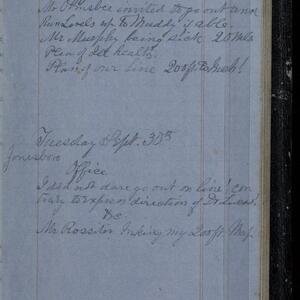 Mr Ormsbee invited to go out and
Run Levels up to Muddy if able.
Mr. Murphy being sick 20 Mls
Plea of ill health.
Plan of our line 200 ft to Inch!
Tuesday Sept. 30th
Jonesboro
Office
I did not dare go out on line! con
trary to express directions of Dr. Lucas!
&c.
Mr Rossiter Inking my 200 ft. Map.